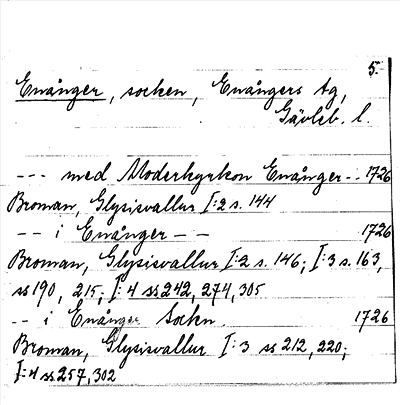 5.
Enånger, socken, Enångers tg,
Gävleb. l.
--- med Moderkyrkon Enånger -- 1726
Broman, Glysisvallur I:2 s. 144
-- i Enånger -- 1726
Broman, Glysisvallur I:2 s. 146; I:3 s. 163,
ss 190, 215; I:4 ss 242, 274, 305
-- i Enånger Sockn. 1726
Broman, Glysisvallur I:3 ss 212, 220;
I:4 ss 257, 302